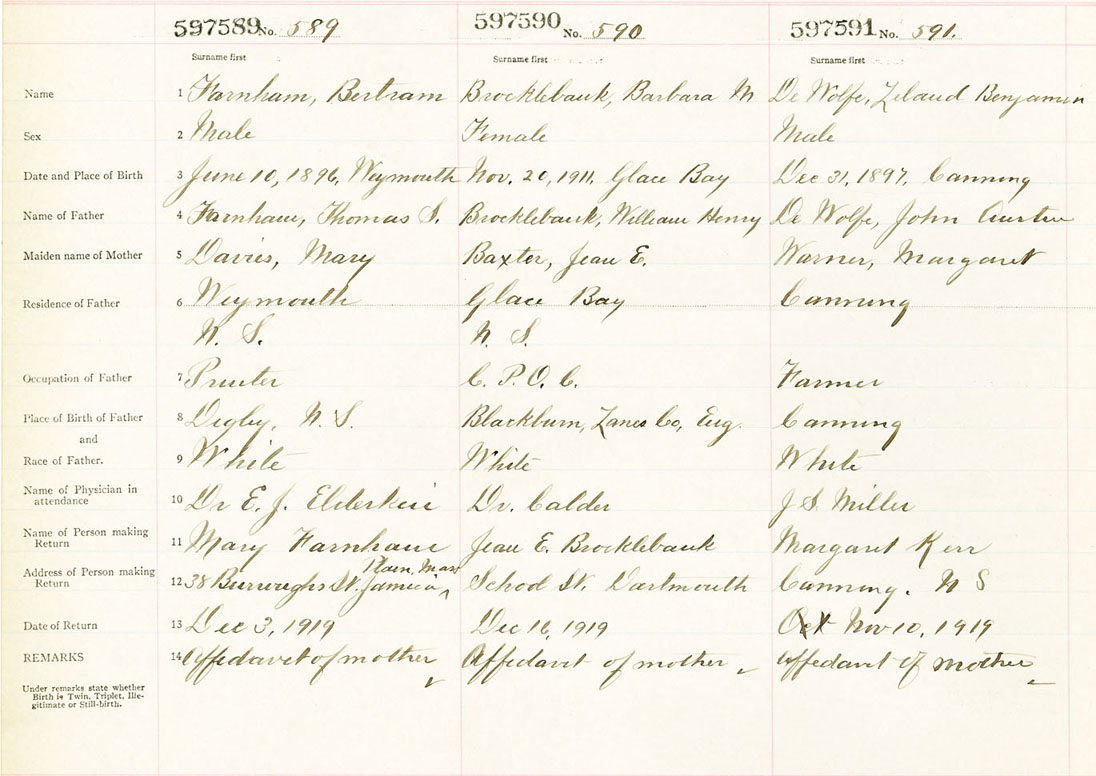 597589 No. 589 597590 No. 590 597591 No. 591.
Surname first Surname first Surname first
Name 1 Farnham, Bertram Brocklebank, Barbara M De Wolfe, Leland Benjamin
Sex 2 Male Female Male
Date and Place of Birth 3 June 10, 1896, Weymouth Nov. 20, 1911, Glace Bay Dec 31, 1897, Canning
Name of Father 4 Farnham, Thomas S. Brocklebank, William Henry De Wolfe, John Austin
Maiden name of Mother 5 Davies, Mary Baxter, Jean E. Warner, Margaret
Residence of Father 6 Weymouth Glace Bay Canning
N. S. N. S.
Occupation of Father 7 Printer C. P. O. C. Farmer
Place of Birth of Father 8 Digby, N. S. Blackburn, Lanes Co, Eng. Canning
and
Race of Father. 9 White White White
Name of Physician in
attendance 10 Dr E. J. Elderkin Dr. Calder J S. Miller
Name of Person making
Return 11 Mary Farnham Jean E. Brocklebank Margaret Kerr
Plain, Mass
Address of Person making
Return 12 38 Burroughs St. Jamaica School St. Dartmouth Canning. N S
Date of Return 13 Dec 3, 1919 Dec 16, 1919 Oct Nov 10, 1919
REMARKS 14 Affedavit of mother Affedavit of mother Affedavit of mother
Under remarks state whether
Birth is Twin, Triplet, Ille-
gitimate or Still-birth.